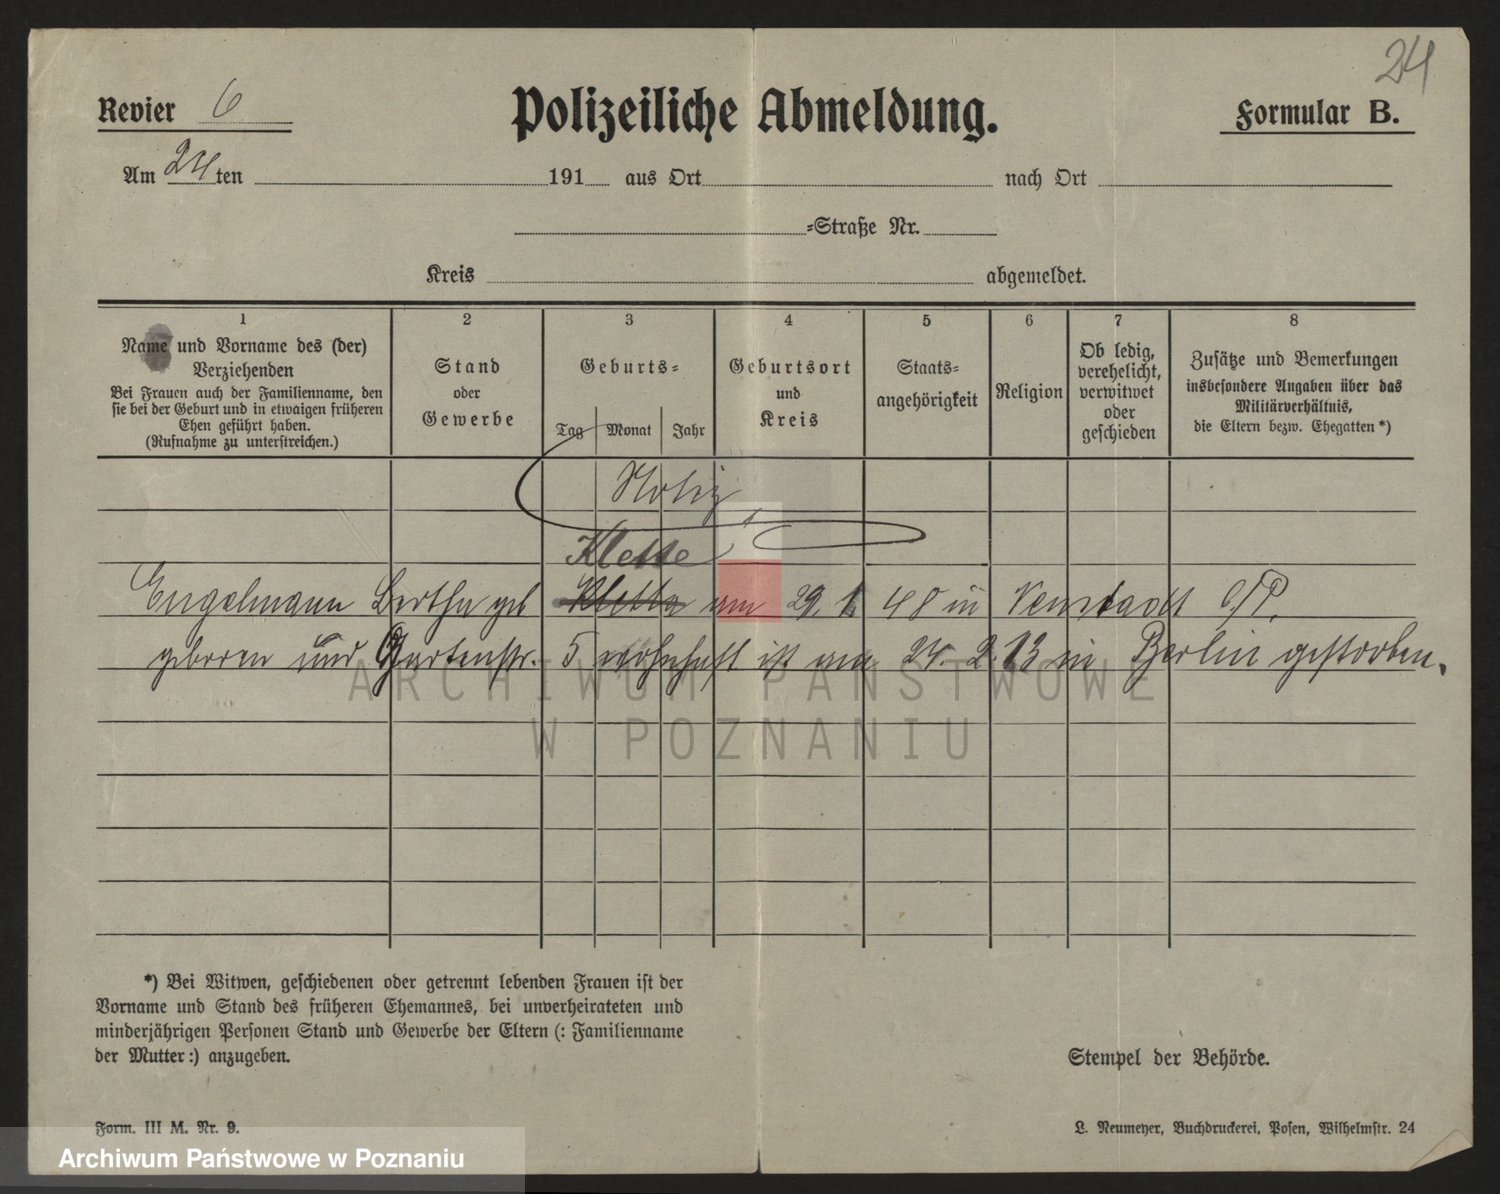 24
Revier 6
Polizeiliche Abmeldung.
Formular B.
Am 24ten 191 aus Ort nach Ort
=Straße Nr.
Kreis abgemeldet.
1 2 3 4 5 6 7 8
Name und Vorname des (der)
Verziehenden
Bei Frauen auch der Familienname, den
sie bei der Geburt und in etwaigen früheren
Ehen geführt haben.
(Rufnahme zu unterstreichen.)
Stand
oder
Gewerbe
Geburts=
Tag Monat Jahr
Geburtsort
und
Kreis
Staats=
angehörigkeit
Religion
Ob ledig,
verehelicht,
verwitwet
oder
geschieden
Zusätze und Bemerkungen
insbesondere Angaben über das
Militärverhältnis,
die Eltern bezw. Ehegatten*)
Notiz
Klette
Engelmann Bertha geb Kletta am 29. 48 in Neustadt O/P.
geboren und Gartenstr. 5 wohnhaft ist am 24. 2 13 in Berlin gestorben.
ARCHIWUM PAŃSTWOWE
W POZNANIU
*) Bei Witwen, geschiedenen oder getrennt lebenden Frauen ist der
Vorname und Stand des früheren Ehemannes, bei unverheirateten und
minderjährigen Personen Stand und Gewerbe der Eltern (: Familienname
der Mutter:) anzugeben.
Stempel der Behörde.
Form. III M. Nr. 9.
L. Neumeyer, Buchdruckerei, Posen, Wilhelmstr. 24
Archiwum Państwowe w Poznaniu